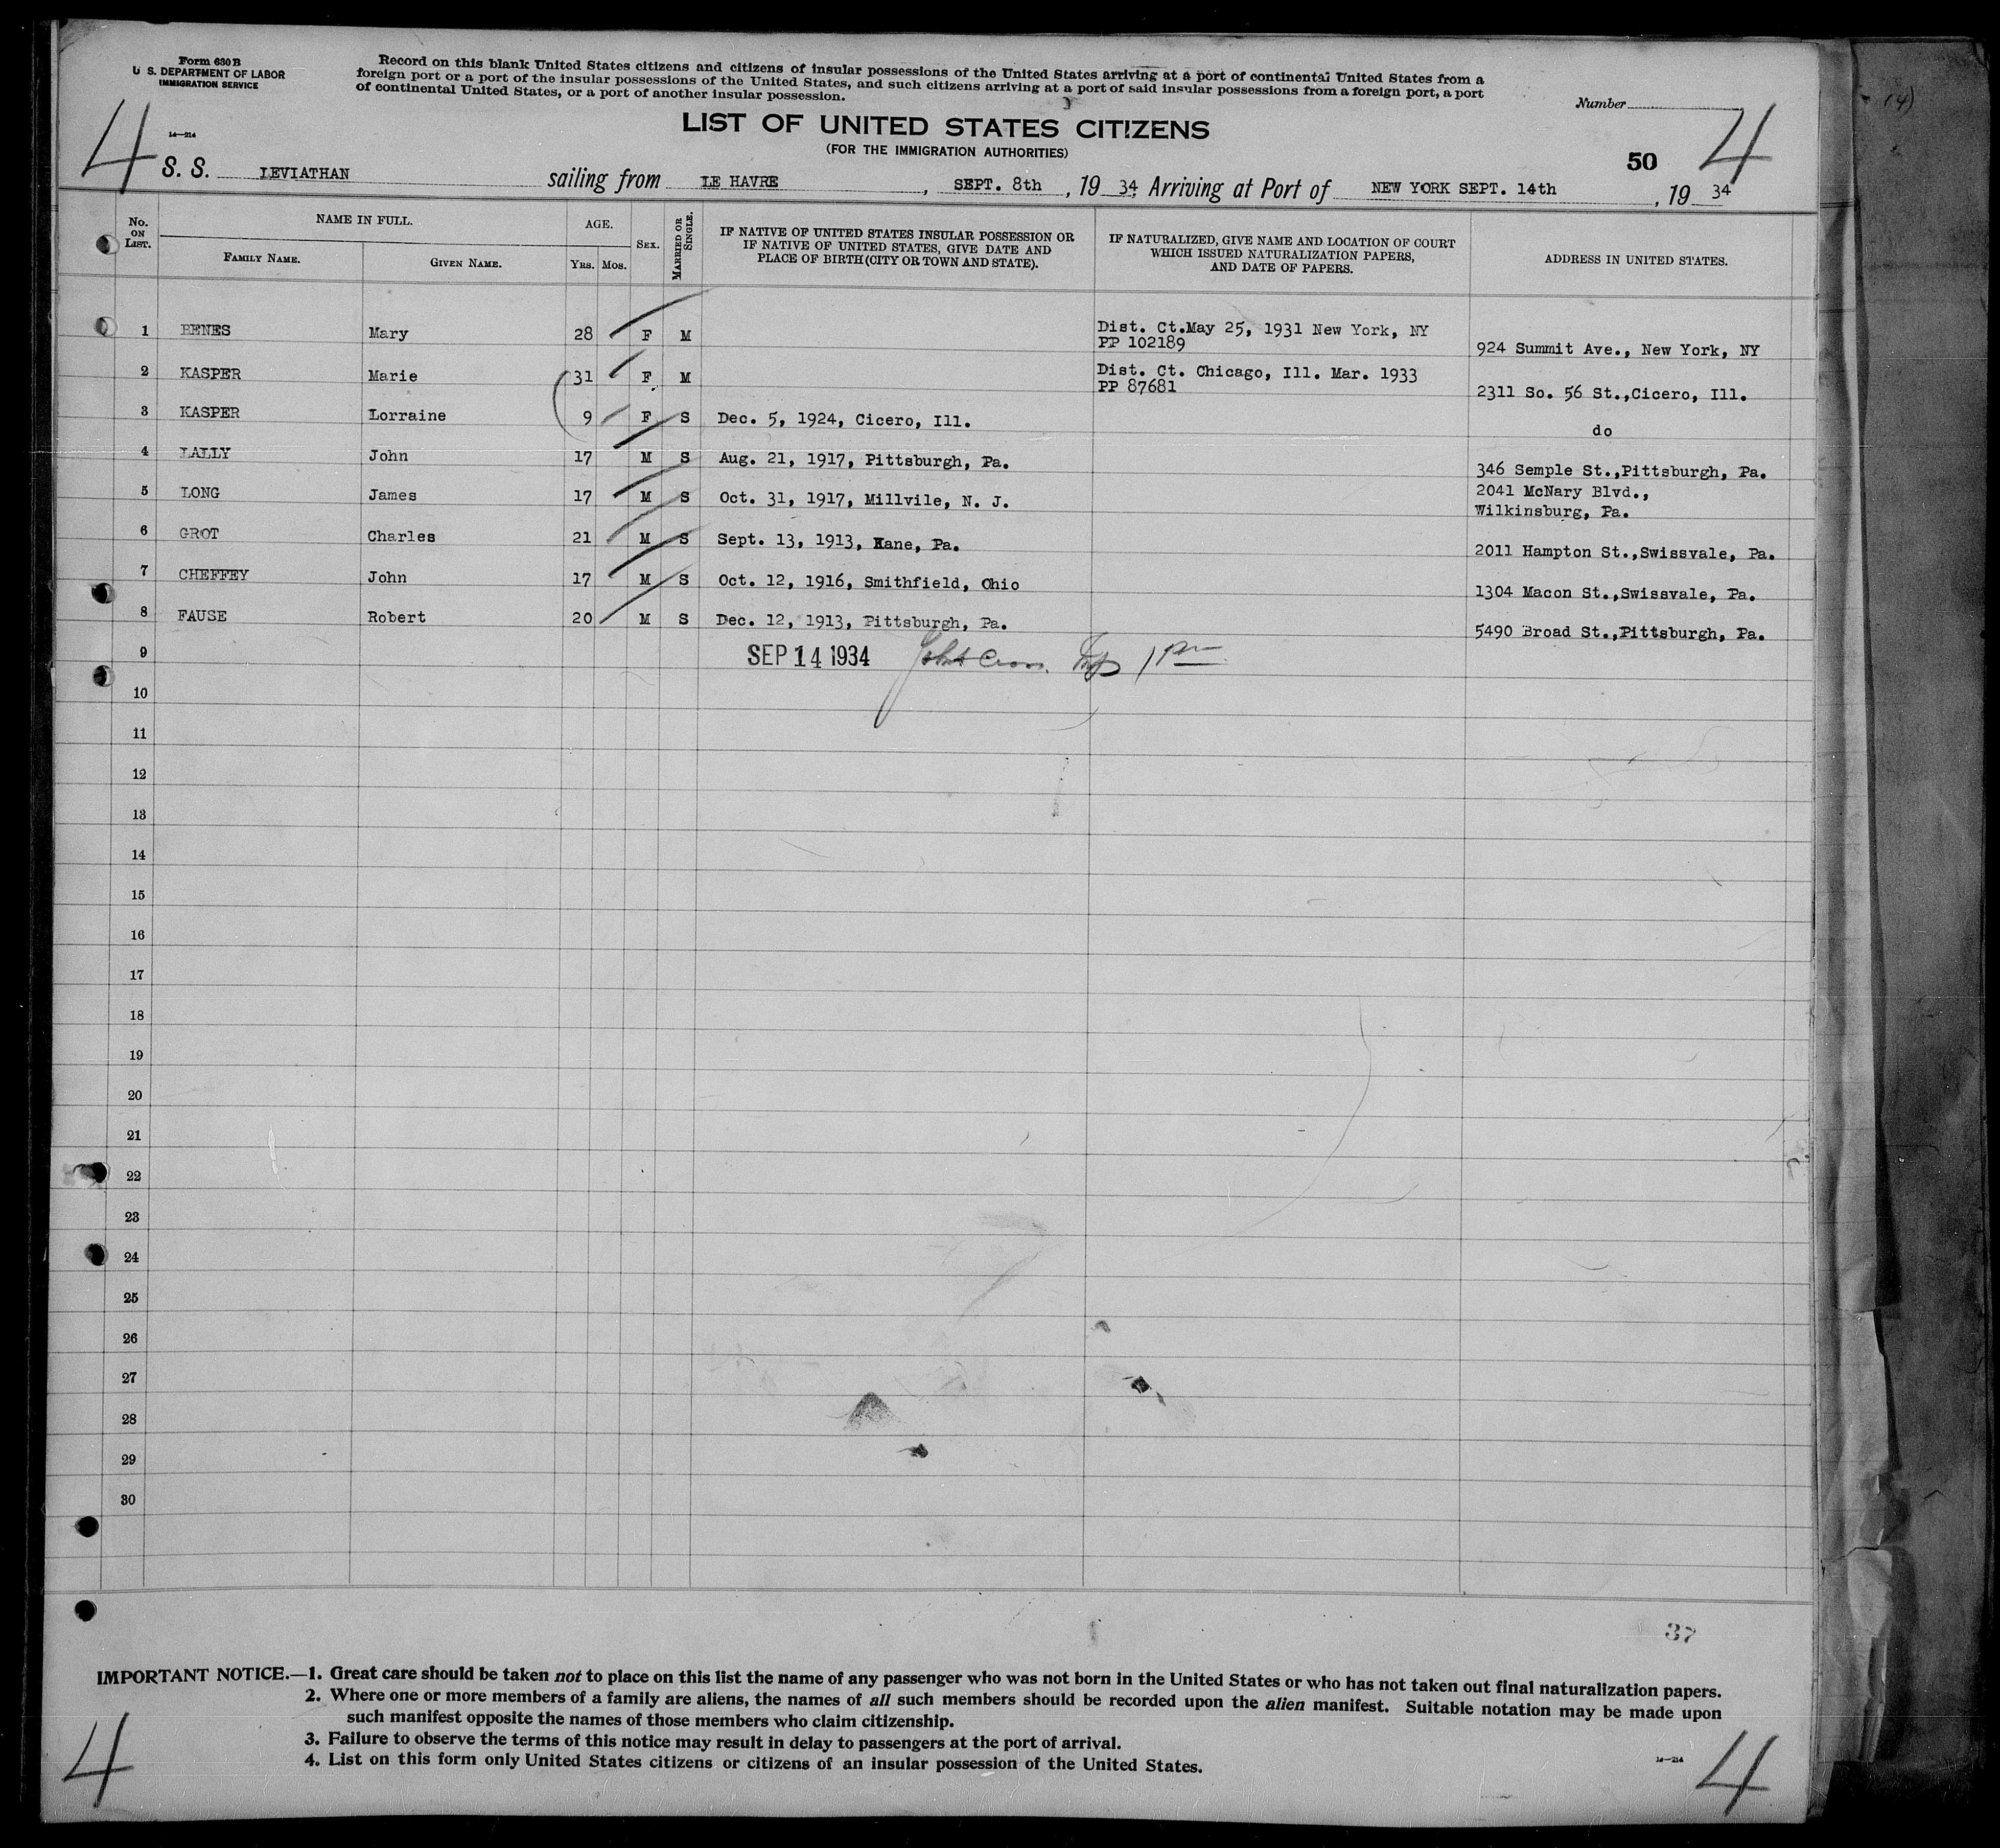 Form 630 B
U S. DEPARTMENT OF LABOR
IMMIGRATION SERVICE
14—214
Record on this blank United States citizens and citizens of insular possessions of the United States arriving at a port of continental United States from a
foreign port or a port of the insular possessions of the United States, and such citizens arriving at a port of said insular possessions from a foreign port, a port
of continental United States, or a port of another insular possession.
Number
4
4
LIST OF UNITED STATES CITIZENS
(FOR THE IMMIGRATION AUTHORITIES)
50
S. S. LEVIATHAN sailing from LE HAVRE, SEPT. 8th, 19 34 Arriving at Port of NEW YORK SEPT. 14th, 19 34
No. ON LIST. NAME IN FULL. AGE. SEX. MARRIED OR SINGLE. IF NATIVE OF UNITED STATES INSULAR POSSESSION OR IF NATIVE OF UNITED STATES, GIVE DATE AND PLACE OF BIRTH (CITY OR TOWN AND STATE). IF NATURALIZED, GIVE NAME AND LOCATION OF COURT WHICH ISSUED NATURALIZATION PAPERS, AND DATE OF PAPERS. ADDRESS IN UNITED STATES.
FAMILY NAME. GIVEN NAME. YRS. MOS.
1 BENES Mary 28 F M Dist. Ct.May 25, 1931 New York, NY
PP 102189 924 Summit Ave., New York, NY
2 KASPER Marie 31 F M Dist. Ct. Chicago, Ill. Mar. 1933
PP 87681 2311 So. 56 St.,Cicero, Ill.
3 KASPER Lorraine 9 F S Dec. 5, 1924, Cicero, Ill. do
4 LALLY John 17 M S Aug. 21, 1917, Pittsburgh, Pa. 346 Semple St.,Pittsburgh, Pa.
5 LONG James 17 M S Oct. 31, 1917, Millvile, N. J. 2041 McNary Blvd.,
Wilkinsburg, Pa.
6 GROT Charles 21 M S Sept. 13, 1913, Kane, Pa. 2011 Hampton St.,Swissvale, Pa.
7 CHEFFEY John 17 M S Oct. 12, 1916, Smithfield, Ohio 1304 Macon St.,Swissvale, Pa.
8 FAUSE Robert 20 M S Dec. 12, 1913, Pittsburgh, Pa. 5490 Broad St.,Pittsburgh, Pa.
9 SEP 14 1934 1 PM
10
11
12
13
14
15
16
17
18
19
20
21
22
23
24
25
26
27
28
29
30
37
IMPORTANT NOTICE.—1. Great care should be taken not to place on this list the name of any passenger who was not born in the United States or who has not taken out final naturalization papers.
2. Where one or more members of a family are aliens, the names of all such members should be recorded upon the alien manifest. Suitable notation may be made upon
such manifest opposite the names of those members who claim citizenship.
3. Failure to observe the terms of this notice may result in delay to passengers at the port of arrival.
4. List on this form only United States citizens or citizens of an insular possession of the United States.
14—214
4
4